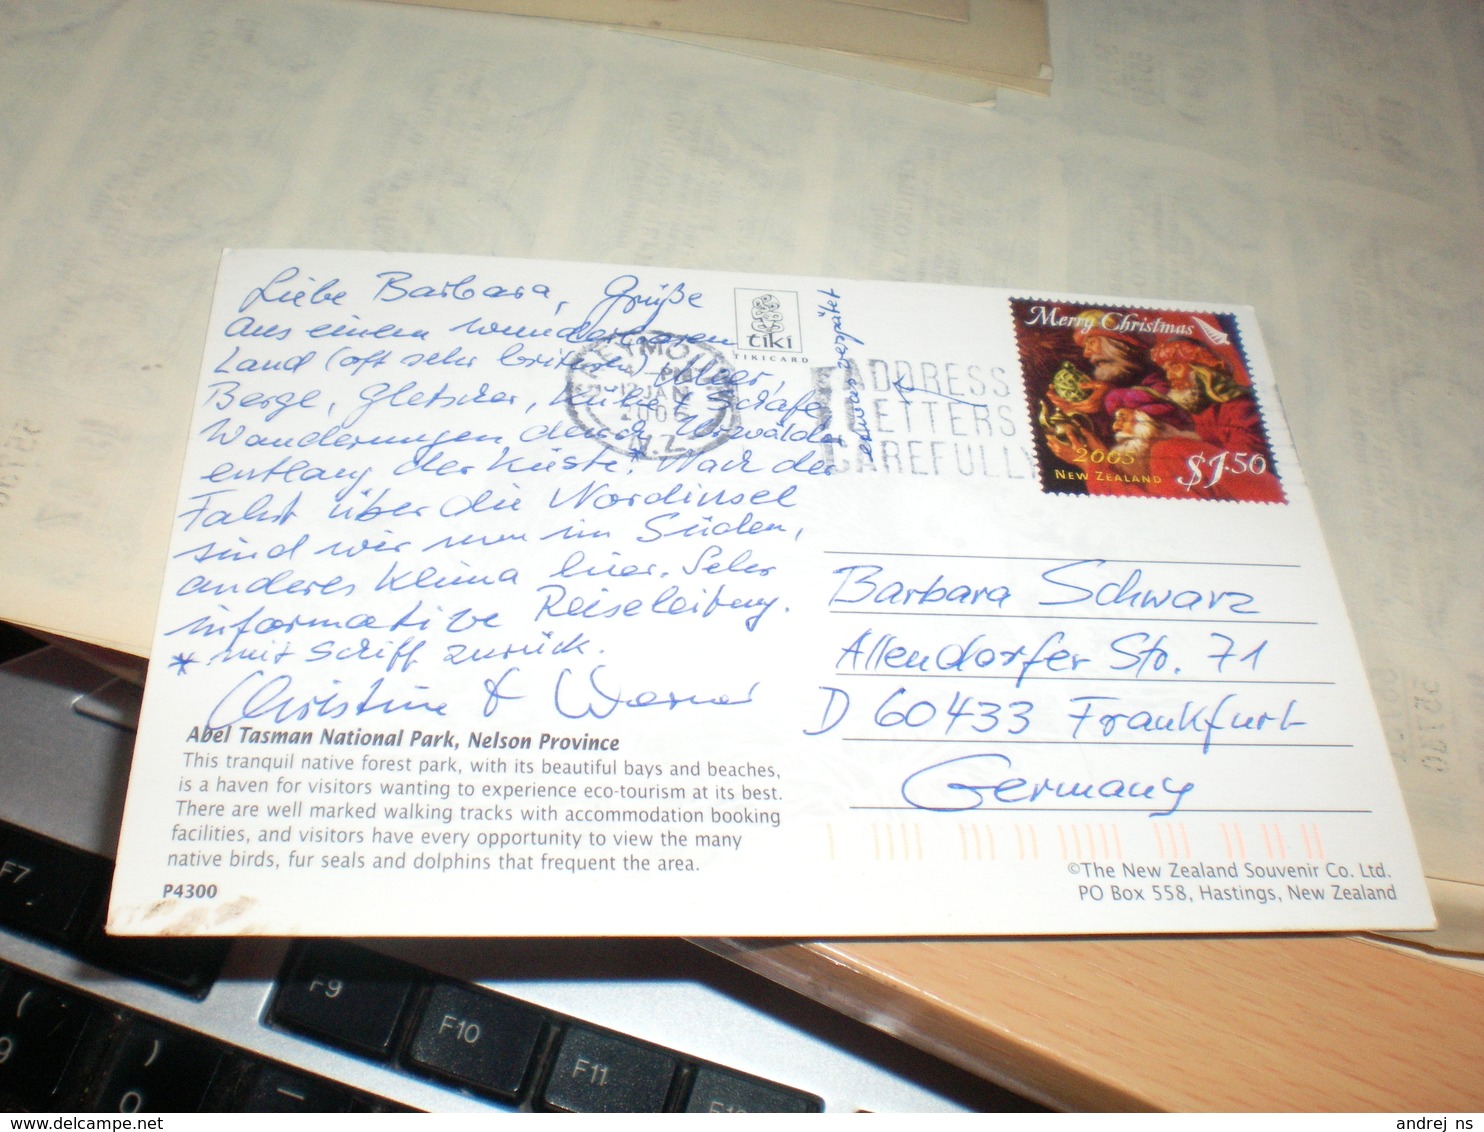 Liebe Barbara, Grüße
aus einem wunderbaren
Land (oft sehr britisch) Meer,
Berge, Gletscher, Kühe & Schafe
Wanderungen durch Urwälder
entlang der Küste.* Nach der
Fahrt über die Nordinsel
sind wir nun im Süden,
anderes Klima hier. Sehr
informative Reiseleitung.
* mit Schiff zurück.
Christine & Werner
Abel Tasman National Park, Nelson Province
This tranquil native forest park, with its beautiful bays and beaches,
is a haven for visitors wanting to experience eco-tourism at its best.
There are well marked walking tracks with accommodation booking
facilities, and visitors have every opportunity to view the many
native birds, fur seals and dolphins that frequent the area.
P4300
tiki
TIKICARD
etwas verspätet
GREYMOUTH
PM
12 JAN
2006
N.Z.
ADDRESS
LETTERS
CAREFULLY
Merry Christmas
2005
NEW ZEALAND
$1.50
Barbara Schwarz
Allendorfer Str. 71
D 60433 Frankfurt
Germany
©The New Zealand Souvenir Co. Ltd.
PO Box 558, Hastings, New Zealand
F7
F9
F10
F11
(
9
)
0
www.delcampe.net
andrej_ns